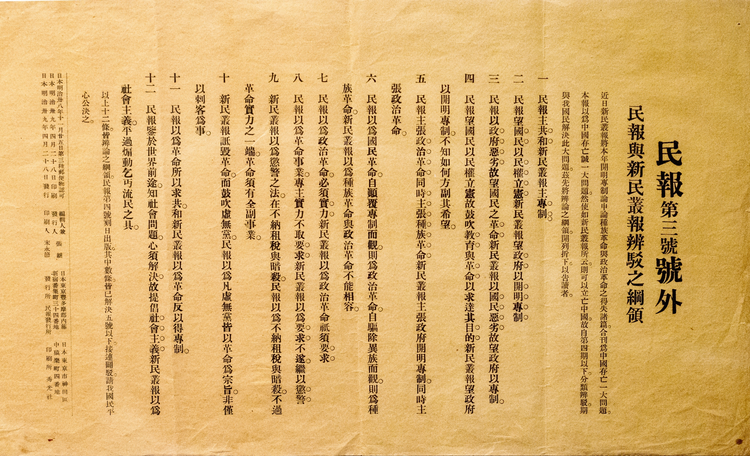 民報第三號號外
民報與新民叢報辨駁之綱領
近日新民叢報將本年開明專制論申論種族革命與政治革命之得失諸篇合刊爲中國存亡一大問題
本報以爲中國存亡誠一大問題然使如新民叢報所云則可以立亡中國故自第四期以下分類辨駁期
與我國民解決此大問題茲先將辨論之綱領開列於下以告讀者
一 民報主共和新民叢報主專制
二 民報望國民以民權立憲新民叢報望政府以開明專制
三 民報以政府惡劣故望國民之革命新民叢報以國民惡劣故望政府以專制
四 民報望國民以民權立憲故鼓吹教育與革命以求達其目的新民叢報望政府
以開明專制不知如何方副其希望
五 民報主張政治革命同時主張種族革命新民叢報主張政府開明專制同時主
張政治革命
六 民報以爲國民革命自顛覆專制而觀則爲政治革命自驅除異族而觀則爲種
族革命新民叢報以爲種族革命與政治革命不能相容
七 民報以爲政治革命必須實力新民叢報以爲政治革命祇須要求
八 民報以爲革命事業專主實力不取要求新民叢報以爲要求不遂繼以懲警
九 新民叢報以爲懲警之法在不納租稅與暗殺民報以爲不納租稅與暗殺不過
革命實力之一端革命須有全副事業
十 新民叢報詆毀革命而鼓吹虛無黨民報以爲凡虛無黨皆以革命爲宗旨非僅
以刺客爲事
十一 民報以爲革命所以求共和新民叢報以爲革命反以得專制
十二 民報鑒於世界前途知社會問題必須解決故提倡社會主義新民叢報以爲
社會主義不過煽動乞丐流民之具
以上十二條皆辨論之綱領民報第四號刻日出版其中數條皆已解決五號以下接連闢駁請我國民平
心公決之
日本明治卅八年十一月廿五日第三種郵便物認可
日本明治卅九年四月二十八日發行